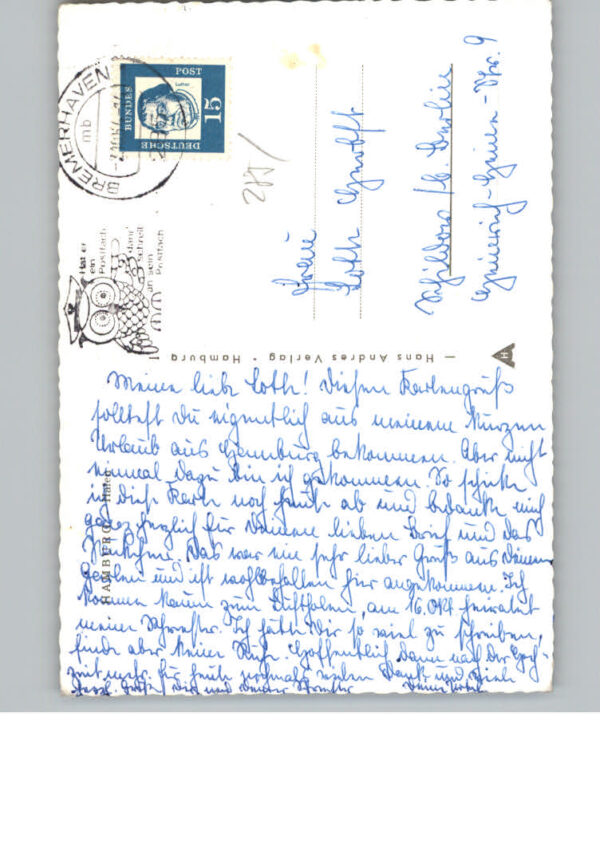 BREMERHAVEN
mb
DEUTSCHE
BUNDES
POST
Luther
15
Hat er
ein
Postfach
dann
schreib
an sein
Postfach
Frau
Lotte
Schildow b/ Berlin
Heinrich-Heine-Str. 9
— Hans Andres Verlag • Hamburg
H
HAMBURG Hafen
Meine liebe Lotte! Diesen Kartengruß
solltest Du eigentlich aus meinem kurzen
Urlaub aus Hamburg bekommen. Aber nicht
einmal dazu bin ich gekommen. So schicke
ich diese Karte noch heute ab und bedanke mich
ganz herzlich für Deinen lieben Brief und das
Das war ein sehr lieber Gruß aus Deinem
Garten und ist wohlbehalten hier angekommen. Ich
komme kaum zum Luftholen, am 16. Okt heiratet
meine Schwester. Ich hätte Dir so viel zu schreiben,
finde aber keine Ruhe. Hoffentlich dann nach der Hoch-
zeit mehr. Für heute nochmals vielen Dank und viele
herzl. Grüße Dir und Deiner Schwester Deine